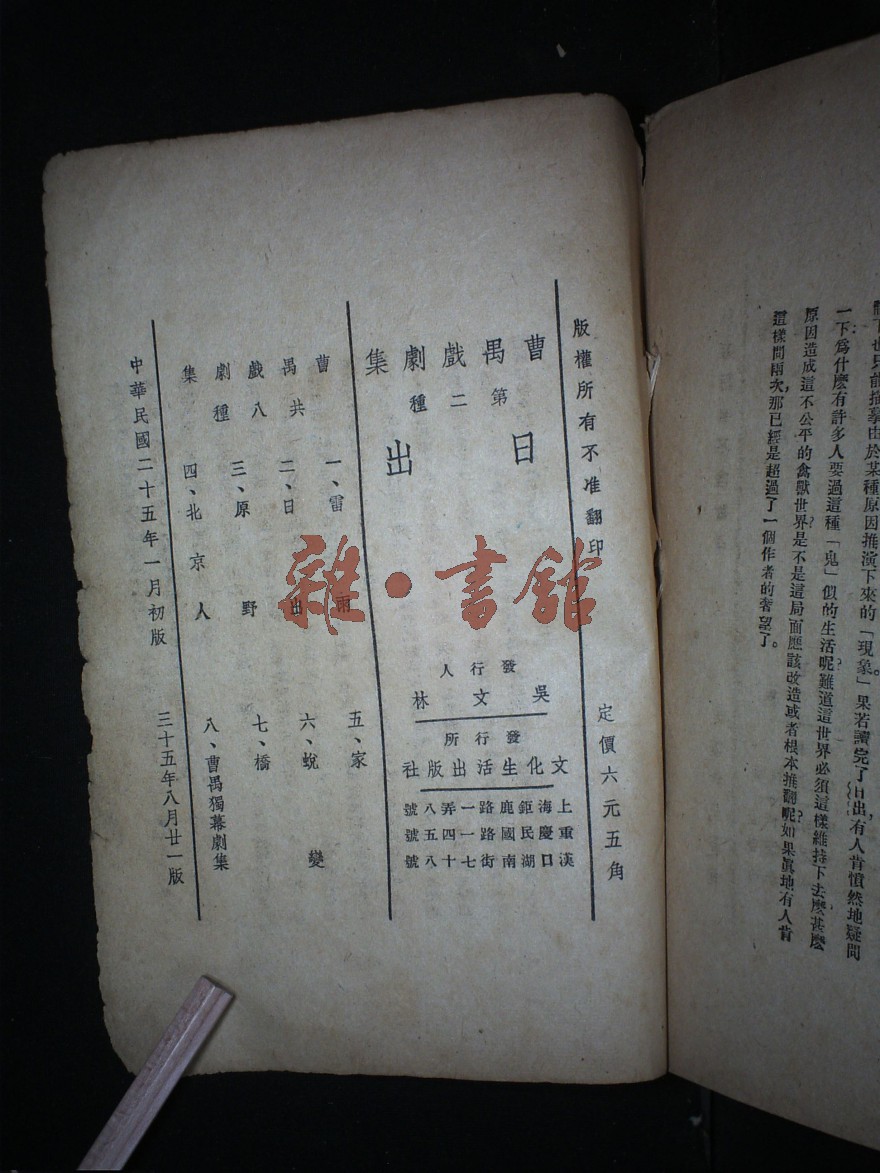 下也只能描摹由於某種原因推演下來的「現象」。果若讀完了日出,有人肯憤然地疑問
一下爲什麽有許多人要過這種「鬼」似的生活呢?難道這世界必須這樣維持下去麽?甚麽
原因造成這不公平的禽獸世界?是不是這局面應該改造或者根本推翻呢?如果眞地有人肯
這樣問兩次,那已經是超過了一個作者的奢望了。
版權所有不准翻印
定價六元五角
曹禺戲劇集
第二種
日出
發行人
吳文林
發行所
文化生活出版社
上海鉅鹿路一弄八號
重慶民國路一四五號
漢口湖南街七十八號
曹禺戲劇集
共八種
一、雷雨
二、日出
三、原野
四、北京人
五、家
六、蛻變
七、橋
八、曹禺獨幕劇集
中華民國二十五年一月初版
三十五年八月廿一版
雜·書館